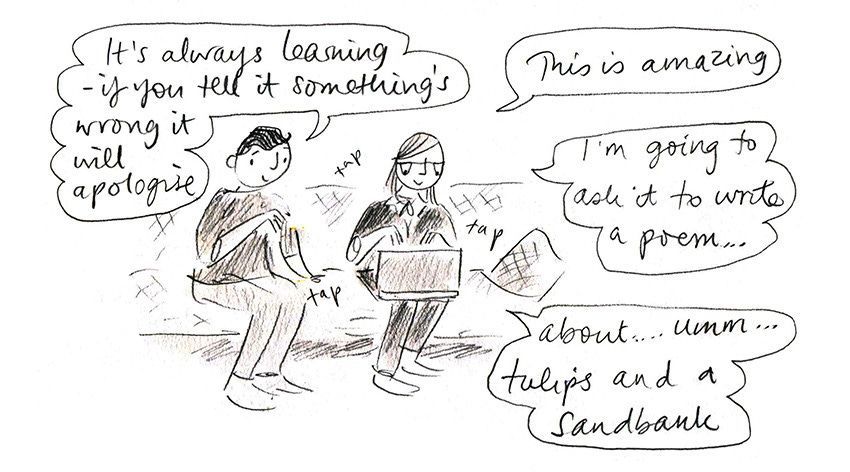 It's always learning
-if you tell it something's
wrong it
will
apologise
This is amazing
tap
I'm going to
ask it to write
a poem...
tap
tap
about.... umm...
tulips and a
sandbank